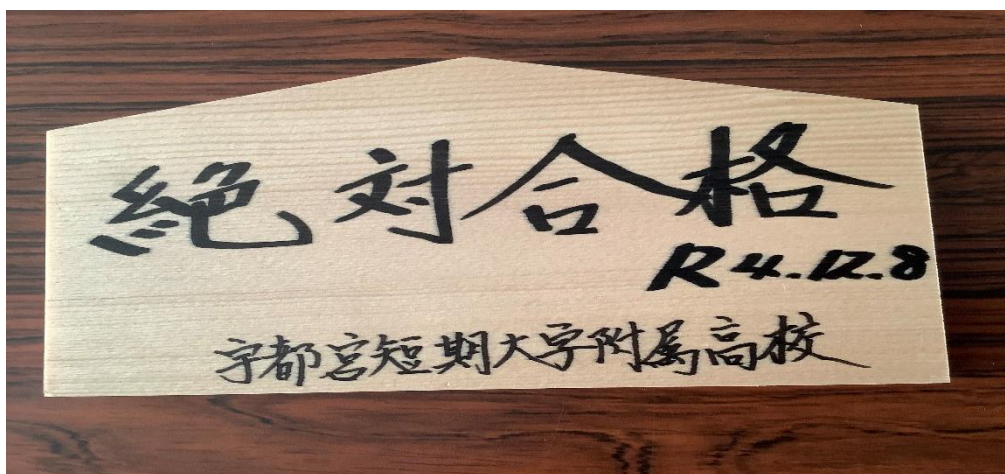 絶対合格
R4.12.8
宇都宮短期大学附属高校